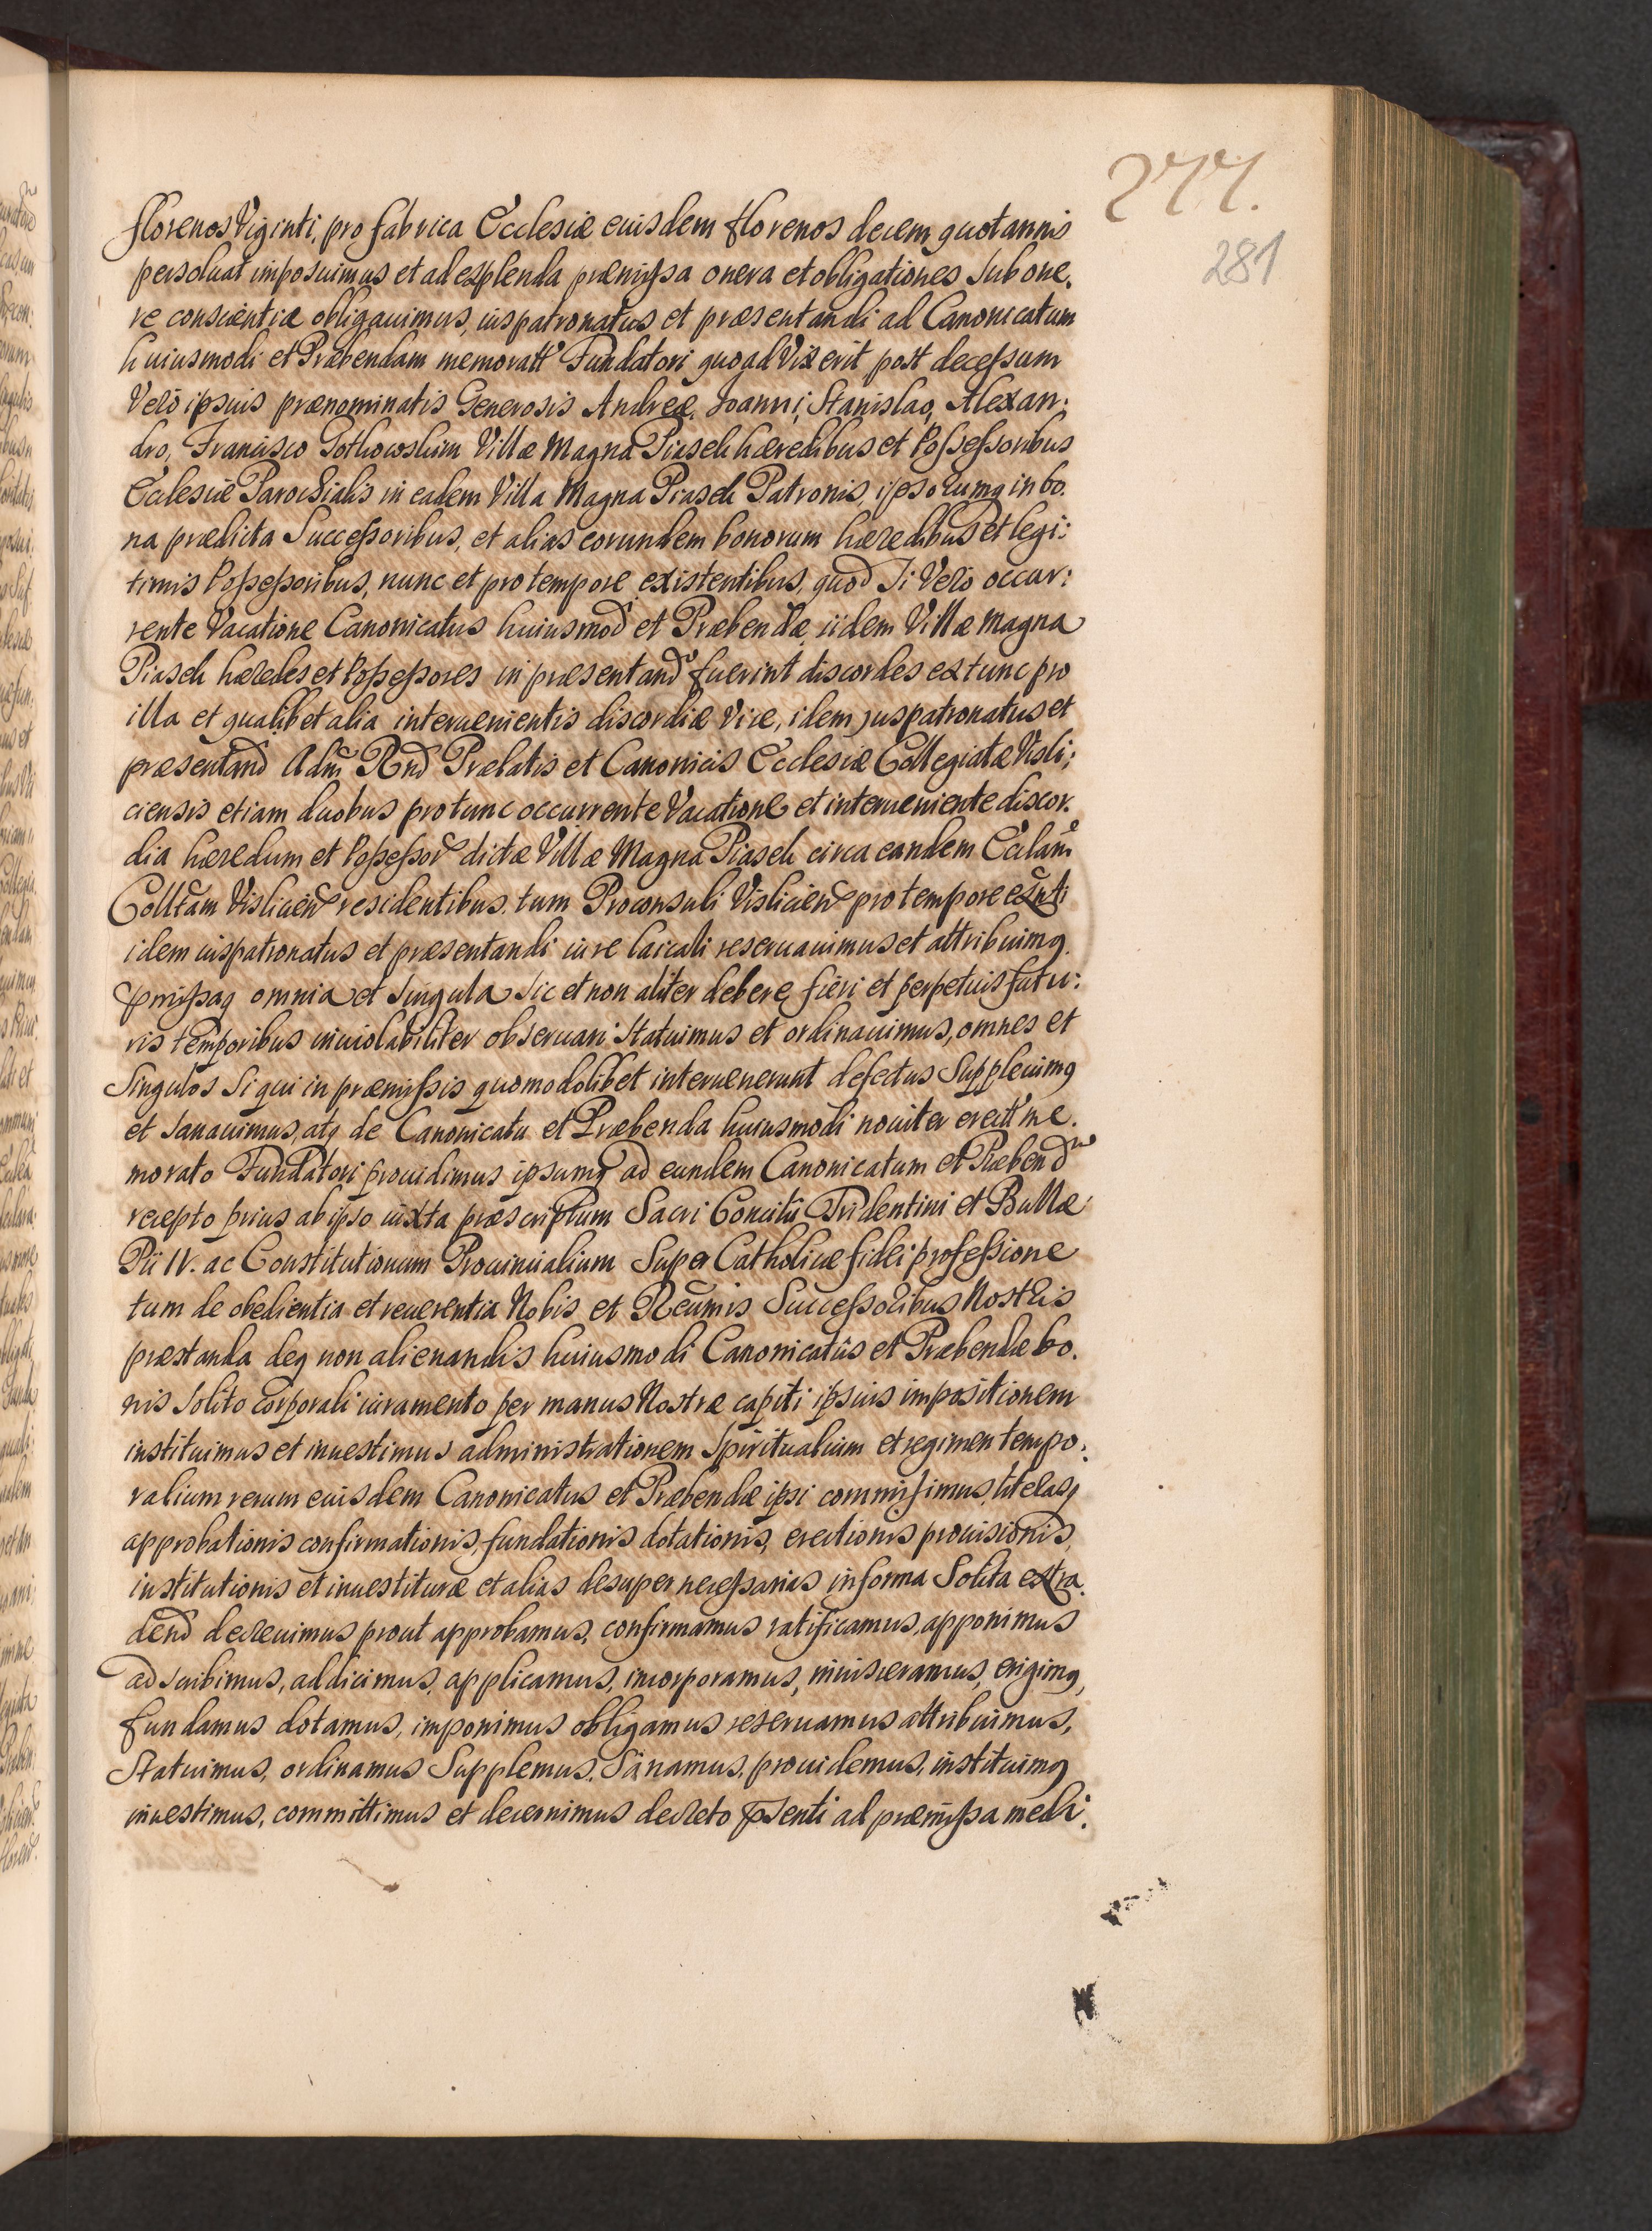 277.
281
florenos Viginti, pro fabrica Ecclesiæ euisdem florenos decem quotannis
persoluat imposuimus et ad explenda præmissa onera et obligationes sub one,
re conscientiæ obligauimus, iuspatronatus et præsentandi ad Canonicatum
huiusmodi et Præbendam memoratt Fundatori quoad Vixerit post decessum
Verò ipsuis prænominatis Generosis Andreæ, Joanni, Stanislao, Alexan:
dro, Francisco Villæ Magna Piasek hæredibus et Possessoribus
Ecclesiæ Parochialis in eadem Villa Magna Piasek Patronis, ipsorumq in bo.
na prædicta Successoribus, et alias eorundem bonorum hæredibus et legi:
timis Possessoribus, nunc et pro tempore existentibus, quod Si Verò occur:
rente Vacatione Canonicatus huiusmod et Præbendæ iidem Villæ Magna
Piasek hæredes et Possessores in præsentand fuerint discordes extunc pro
illa et qualibet alia interuenientis discordiæ Vice, idem juspatronatus et
præsentand Adm Rnd Prælatis et Canonicis Ecclesiæ Collegiatæ Visli:
ciensis etiam duobus protunc occurrente Vacatione et interueniente discor.
dia hæredum et Possessor dictæ Villæ Magna Piasek circa eandem Ecclam
Colltam Vislicien residentibus. tum Proconsuli Vislicien pro tempore exnti
idem iuspatronatus et præsentandi iure laicali reseruauimus et attribuimq.
pmissaq omnia et singula sic et non aliter debere, fieri et perpetuis futu:
ris temporibus inuiolabiliter obseruari Statuimus et ordinauimus, omnes et
Singulos Si qui in præmissis quomodolibet interuenerunt defectus Suppleuimq
et sanauimus, atq de Canonicatu et Præbenda huiusmodi nouiter erectt me.
morato Fundatori prouidimus ipsumq ad eundem Canonicatum et Præbend
recepto prius ab ipso iuxta præscriptum Sacri Concilii Tridentini et Bullæ
Pii IV. ac Constitutionum Prouincialium Super Catholicæ fidei professione
tum de obedientia et reuerentia Nobis et Rẽumis Successoribus Nostris
præstanda deq non alienandis huiusmodi Canonicatûs et Præbendæ bo.
nis solito corporali iuramento per manus Nostræ capiti ipsuis impositionem
instituimus et inuestimus administrationem Spiritualium et regimen tempo:
ralium rerum euisdem Canonicatus et Præbendæ ipsi commisimus, literasq
approbationis confirmationis, fundationis dotationis, erectionis prouisionis,
institutionis et inuestituræ et alias desuper necessarias in forma Solita extra.
dend decreuimus prout approbamus, confirmamus ratificamus, apponimus
adscribimus, addicimus, applicamus, incorporamus, inuisceramus, erigimq,
fundamus dotamus, imponimus obligamus reseruamus attribuimus,
Statuimus, ordinamus Supplemus, Sanamus, prouidemus, instituimq
inuestimus, committimus et decernimus decreto psenti ad præmissa medi: